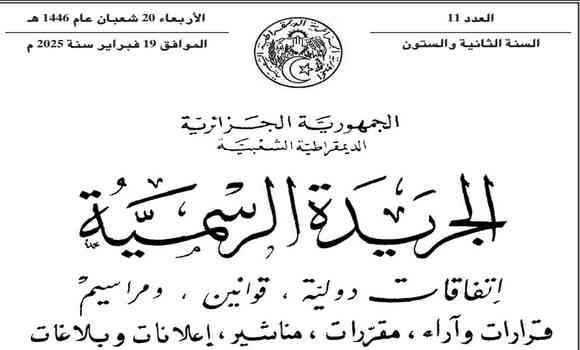 العدد 11
الأربعاء 20 شعبان عام 1446 هـ
السنة الثانية والستون
الموافق 19 فبراير سنة 2025 م
الجمهورية الجزائرية
الديمقراطية الشعبية
الجريدة الرسمية
إتفاقات دولية ، قوانين ، ومراسيم
قرارات وآراء ، مقررات ، مناشير ، إعلانات وبلاغات